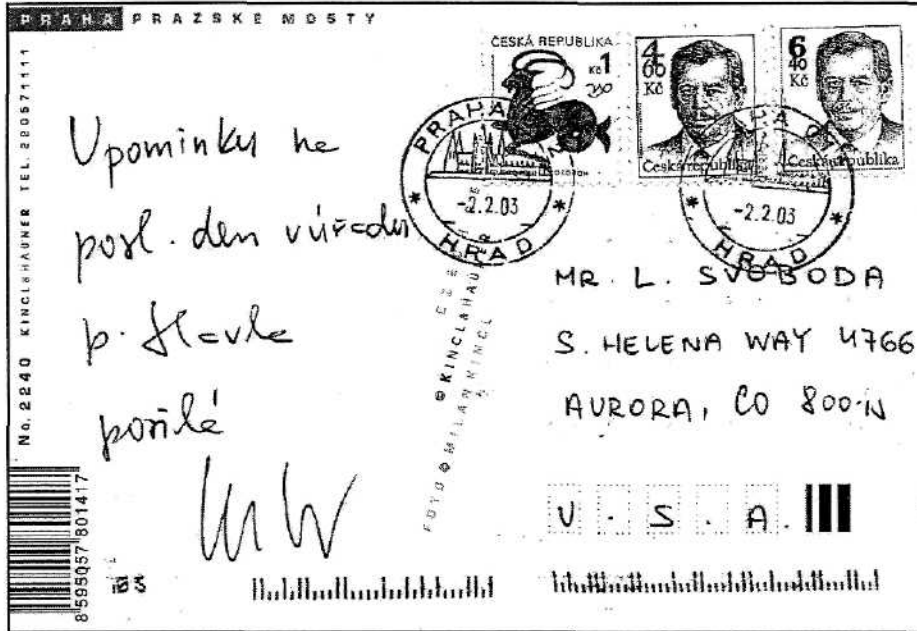 PRAHA PRAŽSKÉ MOSTY
No. 2240 KINCL&HAUNER TEL. 220571111
8595057801417
Upomínku na
posl. den v úřadu
p. Havla
posílá
ČESKÁ REPUBLIKA
Kč 1
4 60 Kč
Česká republika
6 40 Kč
Česká republika
PRAHA
-2.2.03
HRAD
-2.2.03
HRAD
© KINCL&HAUNER
FOTO © MILAN KINCL
MR. L. SVOBODA
S. HELENA WAY 4766
AURORA, CO
U.S.A.